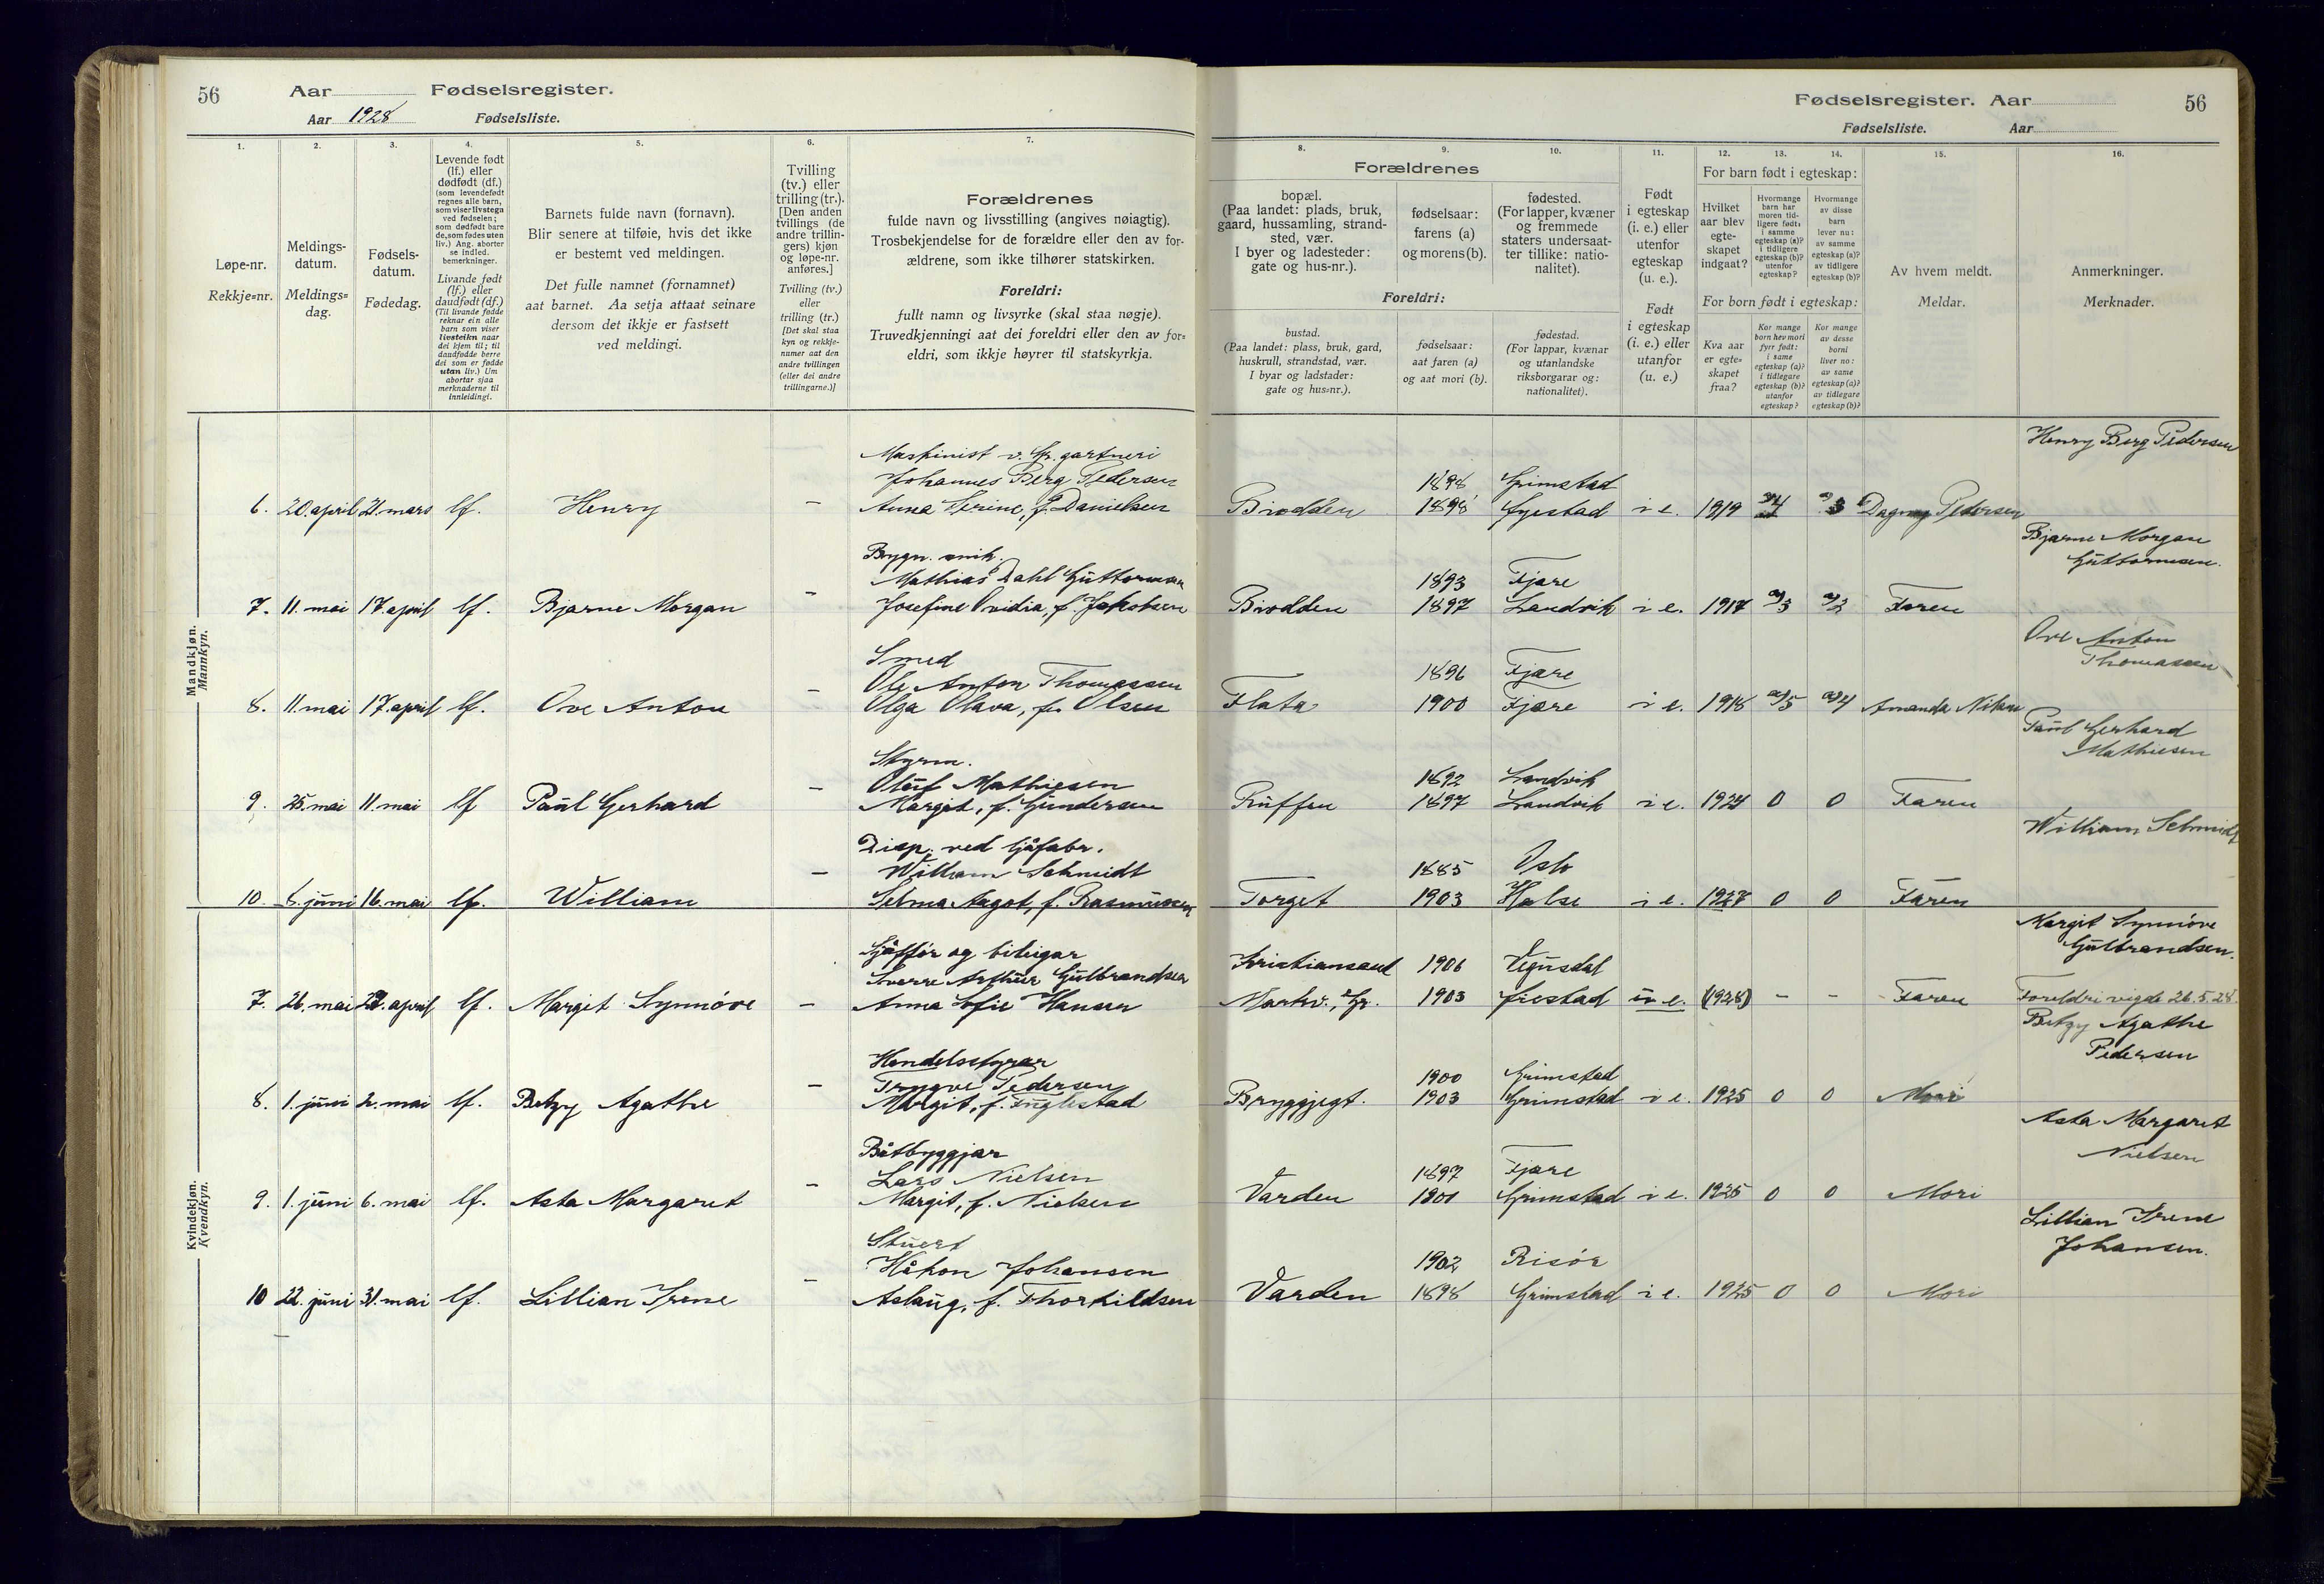 56 Aar Fødselsregister.
Aar 1928 Fødselsliste.
1. 2. 3. 4. 5. 6. 7.
Løpe-nr.
Rekkje=nr.
Meldings-
datum.
Meldings=
dag.
Fødsels-
datum.
Fødedag.
Levende født
(lf.) eller
dødfødt (df.)
(som levendefødt
regnes alle barn,
som viser livstegn
ved fødselen;
som dødfødt bare
de, som fødes uten
liv.) Ang. aborter
se indled.
bemerkninger.
Livande født
(lf.) eller
daudfødt (df.)
(Til livande fødde
reknar ein alle
barn som viser
livsteikn naar
dei kjem til; til
daudfødde berre
dei som er fødde
utan liv.) Um
abortar sjaa
merknaderne til
innleidingi.
Barnets fulde navn (fornavn).
Blir senere at tilføie, hvis det ikke
er bestemt ved meldingen.
Det fulle namnet (fornamnet)
aat barnet. Aa setja attaat seinare
dersom det ikkje er fastsett
ved meldingi.
Tvilling
(tv.) eller
trilling (tr.).
[Den anden
tvillings (de
andre trillin-
gers) kjøn
og løpe-nr.
anføres.]
Tvilling (tv.)
eller
trilling (tr.)
[Det skal staa
kyn og rekkje-
numer aat den
andre tvillingen
(eller dei andre
trillingarne.)]
Forældrenes
fulde navn og livsstilling (angives nøiagtig).
Trosbekjendelse for de forældre eller den av for-
ældrene, som ikke tilhører statskirken.
Foreldri:
fullt namn og livsyrke (skal staa nøgje).
Truvedkjenningi aat dei foreldri eller den av for=
eldri, som ikkje høyrer til statskyrkja.
Mandkjøn.
Mannkyn.
Maskinist v. Gr. gartneri
Johannes Berg Pedersen
6. 20. april 21. mars lf. Henry – Anna Serine, f. Danielsen
Bygn. snik.
Mathias Dahl Guttormsen
7. 11. mai 17. april lf. Bjarne Morgan – Josefine Ovidia, f. Jakobsen
Smed
Ole Anton Thomassen
8. 11. mai 17. april lf. Ove Anton – Olga Olava, f. Olsen
Styrm.
Oluf Mathiesen
9. 25. mai 11. mai lf Paul Gerhard – Margit, f. Gundersen
Disp. ved
William Schmidt
10. 8. juni 16. mai lf. William – Selma Aagot, f. Rasmussen
Kvindekjøn.
Kvendikyn.
Sjåffør og bileigar
Sverre Arthur Gulbrandsen
7. 26. mai 22. april lf. Margit Synnöve – Anna Sofie Hansen
Handelsstyrar
Trygve Pedersen
8. 1. juni 2. mai lf. Betzy Agathe – Margit, f. Fuglestad
Båtbyggjar
Lars Nielsen
9. 1. juni 6. mai lf. Asta Margaret – Margit, f. Nielsen
Stuert
Håkon Johansen
10 22. juni 31. mai lf. Lillian Irene – Aslaug, f. Thorkildsen
Fødselsregister. Aar 56
Fødselsliste. Aar
8. 9. 10. 11. 12. 13. 14. 15. 16.
Forældrenes
bopæl.
(Paa landet: plads, bruk,
gaard, hussamling, strand-
sted, vær.
I byer og ladesteder:
gate og hus-nr.).
fødselsaar:
farens (a)
og morens (b).
fødested.
(For lapper, kvæner
og fremmede
staters undersaat-
ter tillike: natio-
nalitet).
Foreldri:
bustad.
(Paa landet: plass, bruk, gard,
huskrull, strandstad, vær.
I byar og ladstader:
gate og hus=nr.).
fødselsaar:
aat faren (a)
og aat mori (b).
fødestad.
(For lappar, kvænar
og utanlandske
riksborgarar og:
nationalitet).
Født
i egteskap
(i. e.) eller
utenfor
egteskap
(u. e.).
Født
i egteskap
(i. e.) eller
utanfor
(u. e.)
For barn født i egteskap:
Hvilket
aar blev
egte-
skapet
indgaat?
Hvormange
barn har
moren tid-
ligere født:
i samme
egteskap (a)?
i tidligere
egteskap (b)?
utenfor
egteskap?
Hvormange
av disse
barn
lever nu:
av samme
egteskap (a)?
av tidligere
egteskap (b)?
For born født i egteskap:
Kva aar
er egte=
skapet
fraa?
Kor mange
born hev mori
fyrr født:
i same
egteskap (a)?
i tidlegare
egteskap (b)?
utanfor
egteskap?
Kor mange
av desse
borni
liver no:
av same
egteskap (a)?
av tidlegare
egteskap (b)?
Av hvem meldt.
Meldar.
Anmerkninger.
Merknader.
Henry Berg Pedersen
1898 Grimstad
Brodden 1898 Øyestad i e. 1919 a) 4 a) 3 Dagny Pedersen
Bjarne Morgan
Guttormsen.
1893 Fjære
Brodden 1897 Landvik i e. 1917 a) 3 a) 2 Faren
Ove Anton
Thomassen
1896 Fjære
Flata 1900 Fjære i e. 1918 a) 5 a) 4 Amanda
Paul Gerhard
Mathiesen
1892 Landvik
Ruffen 1897 Landvik i e. 1924 0 0 Faren
William Schmidt
1885 Oslo
Torget 1903 Halse i e. 1927 0 0 Faren
Margit Synnöve
Gulbrandsen.
Kristiansand 1906 Vegusdal
Markv., Gr. 1903 u. e. (1928) - - Faren Foreldri vigde 26.5.28.
Betzy Agathe
Pedersen
1900 Grimstad
Bryggjegt. 1903 Grimstad i e. 1925 0 0 Mori
Asta Margaret
Nielsen
1897 Fjære
Varden 1900 Grimstad i e. 1925 0 0 Mori
Lillian Irene
Johansen.
1902 Risör
Varden 1898 Grimstad i e. 1925 0 0 Mori